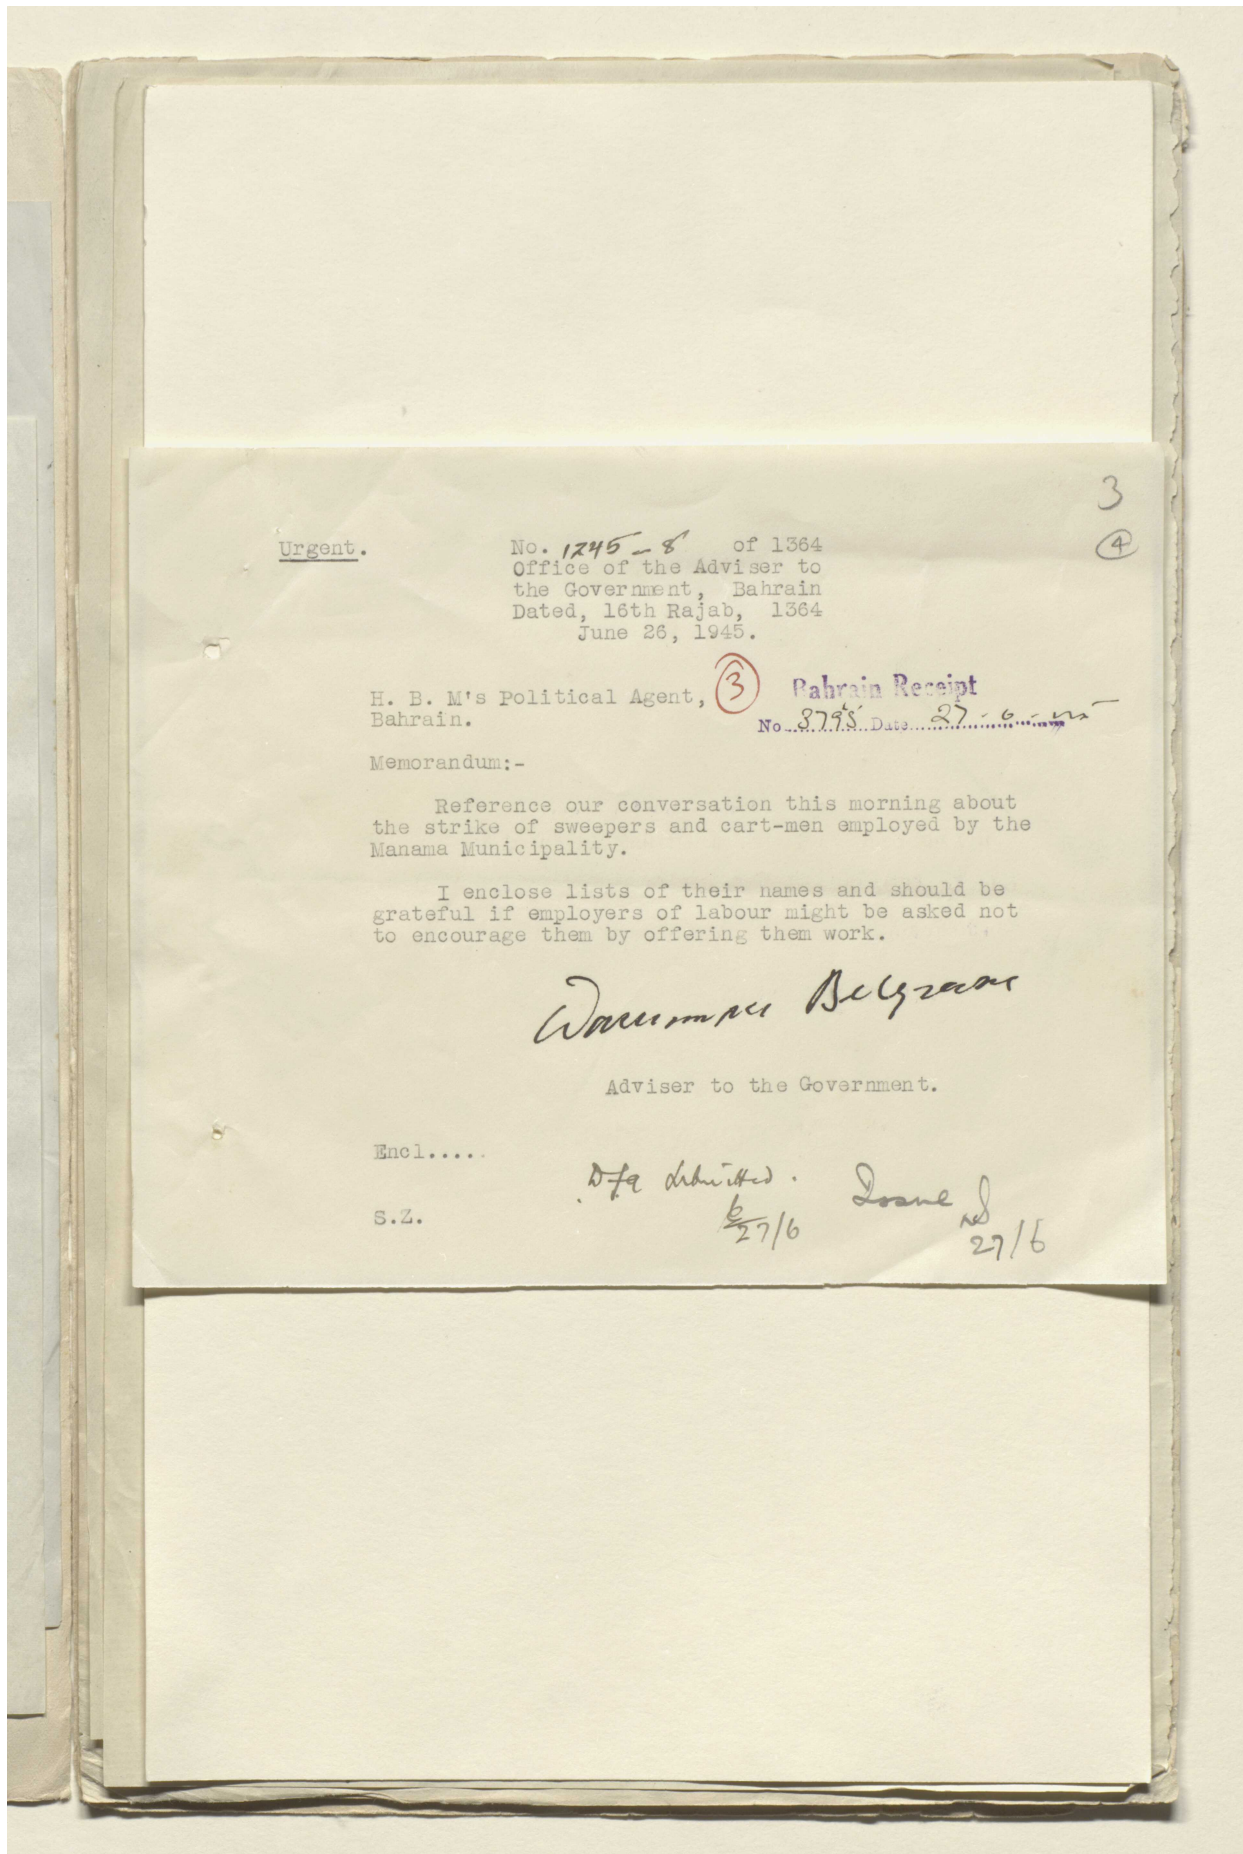 3
4
Urgent.
No. 1245-8 of 1364
Office of the Adviser to
the Government, Bahrain
Dated, 16th Rajab, 1364
June 26, 1945.
H. B. M's Political Agent,
Bahrain.
3
Bahrain Receipt
No 3795 Date 27-6-45
Memorandum:-
Reference our conversation this morning about
the strike of sweepers and cart-men employed by the
Manama Municipality.
I enclose lists of their names and should be
grateful if employers of labour might be asked not
to encourage them by offering them work.
Belgrave
Adviser to the Government.
Encl.....
S.Z.
Dfa submitted.
27/6
Issue
27/6